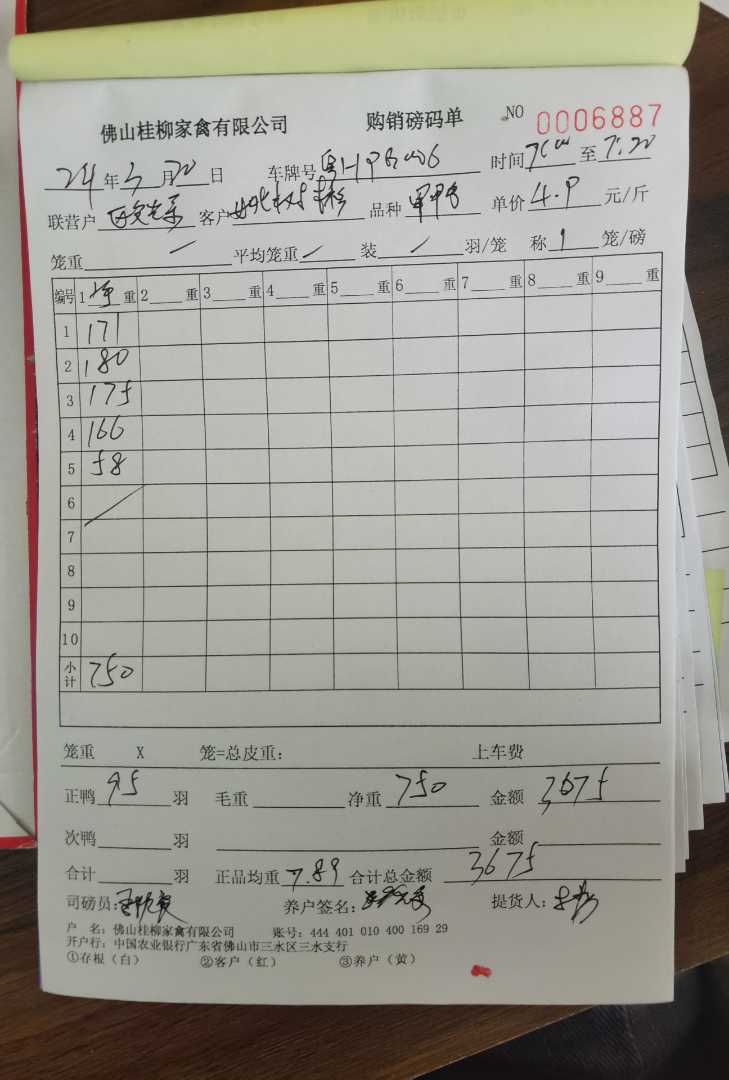 佛山桂柳家禽有限公司 购销磅码单 NO 0006887
24年5月20日 车牌号 粤H 时间7:00至7:20
联营户 客户 品种 单价4.9元/斤
笼重 / 平均笼重 / 装 / 羽/笼 称 1 笼/磅
编号 1净重 2 重 3 重 4 重 5 重 6 重 7 重 8 重 9 重
1 171
2 180
3 175
4 166
5 58
6
7
8
9
10
小计 750
笼重 X 笼=总皮重: 上车费
正鸭 95 羽 毛重 净重 750 金额 3675
次鸭 羽 金额
合计 羽 正品均重 7.89 合计总金额 3675
司磅员: 养户签名: 提货人:
户 名: 佛山桂柳家禽有限公司 账号: 444 401 010 400 169 29
开户行: 中国农业银行广东省佛山市三水区三水支行
①存根(白) ②客户(红) ③养户(黄)